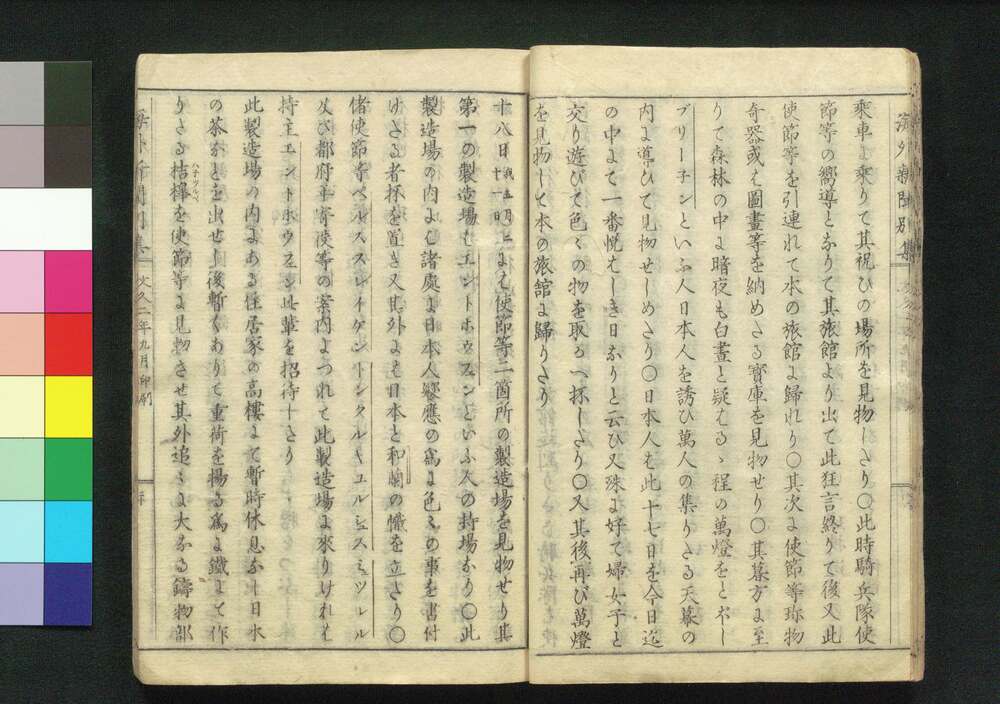 乗車ニ乗りて其祝ひの場所を見物しさり〇此時騎兵隊使
節等の嚮導となりて其旅館より出て此狂言終りて後又此
使節等を引連れて本の旅館ニ歸れり〇其次ニ使節等珎物
奇器或ハ圖畫等を納めたる寳庫を見物せり〇其暮方ニ至
りて森林の中ニ暗夜も白晝と疑はるゝ程の萬燈をとぼし
ブリーチンといふ人日本人を誘ひ萬人の集りたる天幕の
内ニ導ひて見物せしめたり〇日本人も此十七日を今日迄
の中にて一番悦ばしき日なりと云ひ又殊ニ好て婦女子と
交り遊びて色々の物を取るべ抔したり〇又其後再び萬燈
を見物して本の旅館ニ歸りたり
十八日
使節等二箇所の製造場を見物せり其
第一の製造場もエントホウスンといふ人の持場なり〇此
製造場の内ニも諸處ニ日本人饗應の爲ニ色々の事を書付
けたる者抔を置き又其外ニも日本と和蘭の幟を立たり〇
偖使節等ペルススレイケントンタルキュルシュスミツレル
及び都府平寄使等の案内ニよつれて此製造場ニ來りければ
持主エントホウスン此輩を招待したり
此製造場の内ニある住居家の高樓ニて暫時休息なし日本
の茶などを出せし後暫くありて重荷を揚る爲ニ鐵ニて作
りたる桔槹を使節等ニ見物させ其外追々ニ大なる鑄物部
文久二年九月印刷